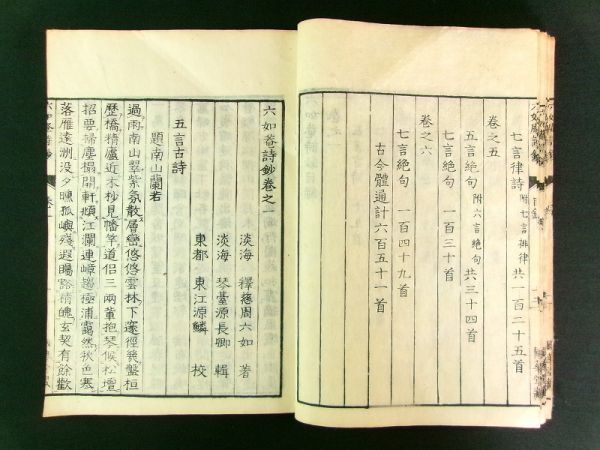 七言律詩 附七言排律 共一百二十五首
卷之五
五言絕句 附六言絕句 共三十四首
七言絕句 一百三十首
卷之六
七言絕句 一百四十九首
古今體通計六百五十一首
六如菴詩鈔卷之一
淡海 釋慈周六如 著
淡海 琴臺源長卿 輯
東都 東江源鱗 校
五言古詩
題南山蘭若
過雨南山翠紫氛散層巒悠悠雲林下邃徑幾盤桓
歷橋精廬近木杪見幡竿道侶三兩輩抱琴候松壇
招要掃塵榻開軒頫江瀾連嶂極浦靄然秋色寒
落雁遠洲没夕曛孤嶼殘遐矚豁精魄玄契有餘歡